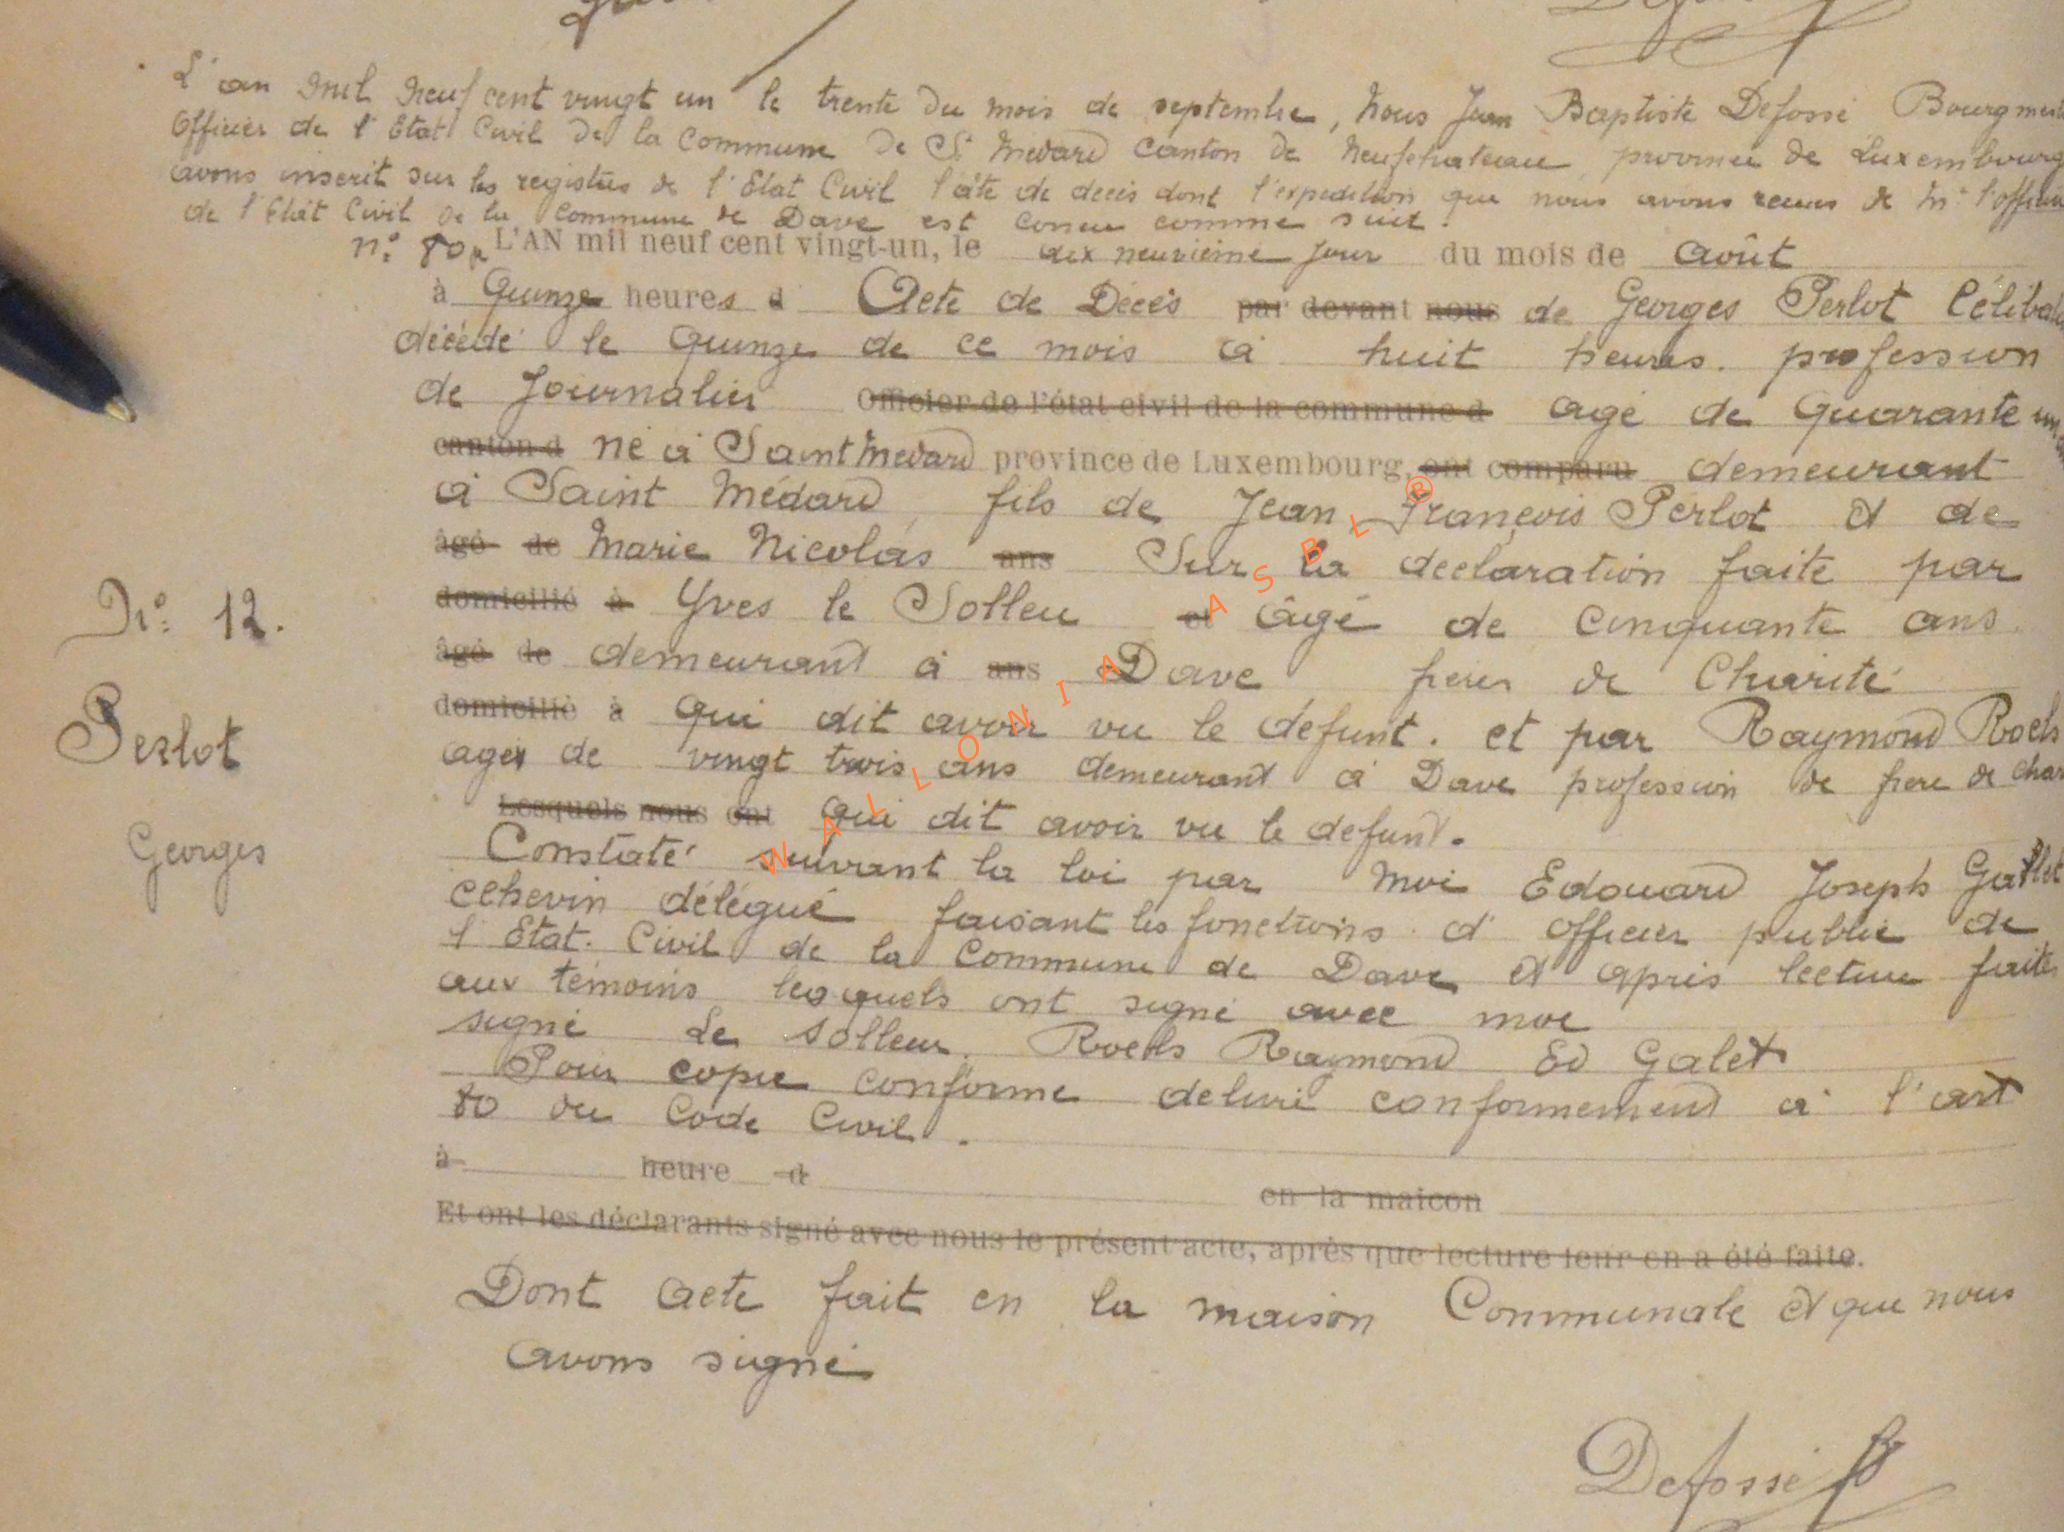 L'an mil neuf cent vingt un le trente du mois de septembre, Nous Jean Baptiste Defossé
Officier de l'Etat Civil de la Commune de St Médard Canton de Neufchateau province de Luxembourg
avons inscrit sur les registres de l'Etat Civil l'acte de décès dont l'expedition que nous avons recus de Mr l'officier
de l'Etat Civil de la Commune de Dave est concu comme suit.
N° 80 L'AN mil neuf cent vingt-un, le dix neuvième jour du mois de Août
à Quinze heures d Acte de Décès par devant nous de Georges Perlot Céliba
décédé le quinze de ce mois à huit heures. profession
de Journalier Officier de l'état civil de la commune d agé de Quarante un
canton d né à Saint Médard province de Luxembourg, ont comparu demeurant
à Saint Médard fils de Jean François Perlot et de
âgé de Marie Nicolas ans Sur la declaration faite par
domicilié à Yves le Solleu et âgé de cinquante ans
âgé de demeurant à ans Dave frères de Charité
domicilié à qui dit avoir vu le defunt. et par Raymond Roels
agé de vingt trois ans demeurant à Dave profession de frere de Char
Lesquels nous ont qui dit avoir vu le defunt.
Constaté suivant la loi par moi Edouard Joseph Gallet
echevin délégué faisant les fonctions d'officier public de
l'Etat Civil de la Commune de Dave et après lecture faite
aux témoins lesquels ont signé avec moi
signé Le Solleu. Roels Raymond Ed Galet
Pour copie conforme delivré conformement à l'art
80 du Code Civil.
à heure d en la maison
Et ont les déclarants signé avec nous le présent acte, après que lecture leur en a été faite.
Dont acte fait en la maison Communale et que nous
avons signé
Defossé JB
N° 12.
Perlot
Georges
WALLONIA ASBL ®